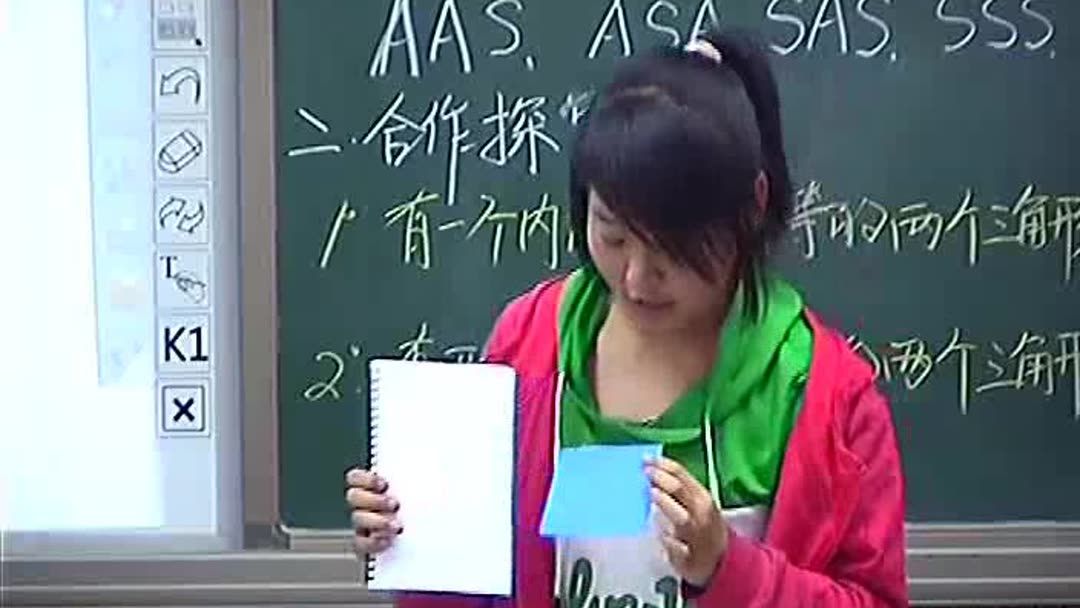 AAS. ASA SAS. SSS.
二.合作探
1°有一个内 等的两个三角形
2° 两个三角形
T
K1